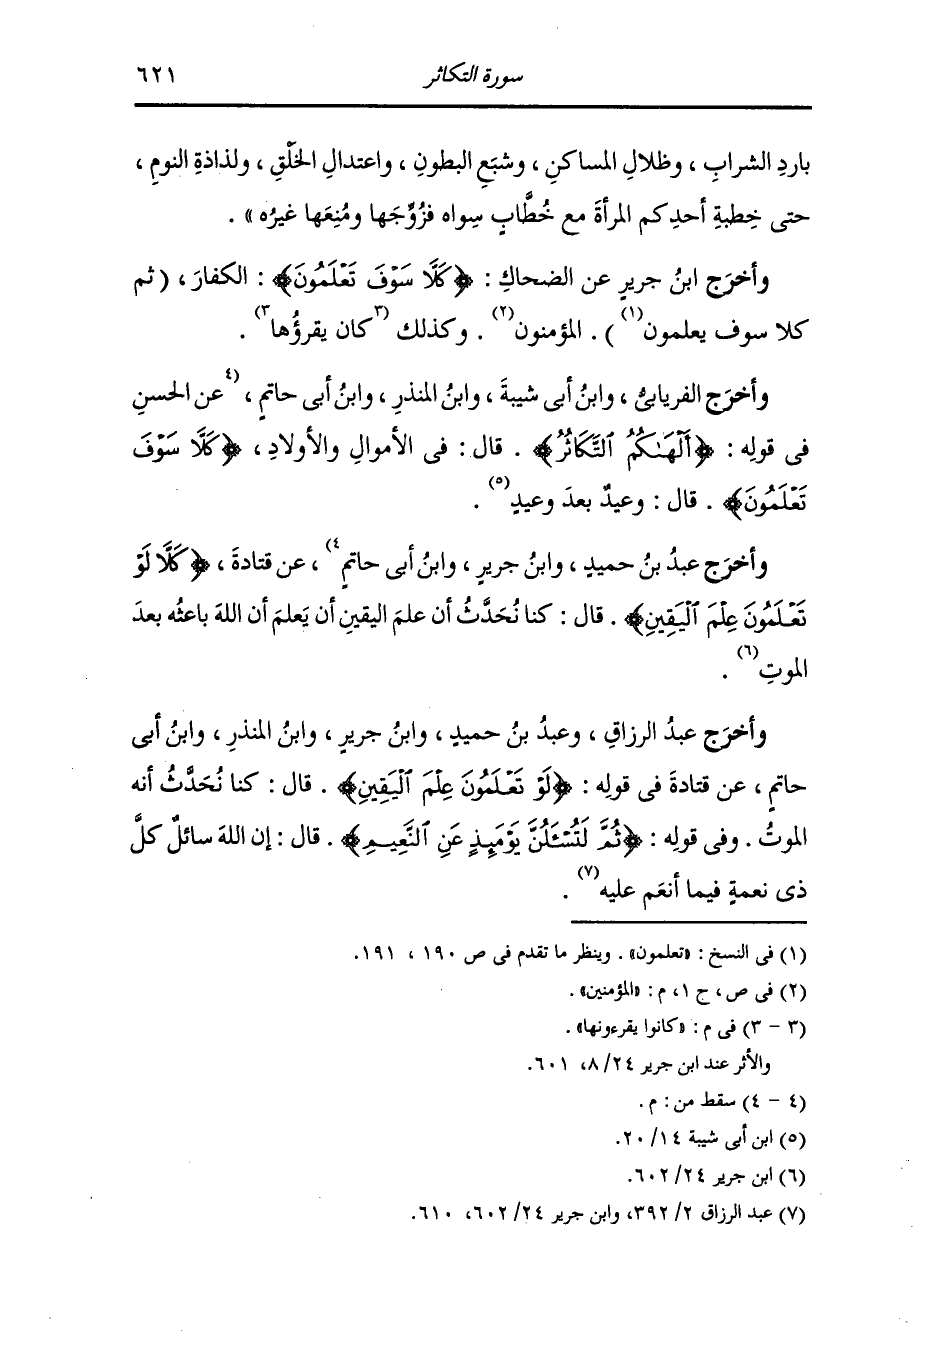 سورة التكاثر ٦٢١
باردِ الشرابِ ، وظلالِ المساكنِ ، وشبَعِ البطونِ ، واعتدالِ الخَلْقِ ، ولذاذةِ النومِ ،
حتى خِطبةِ أحدِكم المرأةَ مع خُطَّابٍ سِواه فزُوِّجَها ومُنِعَها غيرُه » .
وأخرَج ابنُ جريرٍ عن الضحاكِ : ﴿كَلَّا سَوْفَ تَعْلَمُونَ﴾ : الكفارَ ، ( ثم
كلا سوف يعلمون(١) ) . المؤمنون(٢) . وكذلك (٣كان يقرؤُها٣) .
وأخرَج الفريابىُّ ، وابنُ أبى شيبةَ ، وابنُ المنذرِ ، وابنُ أبى حاتمٍ ، (٤عن الحسنِ
فى قولِه : ﴿أَلْهَىٰكُمُ ٱلتَّكَاثُرُ﴾ . قال : فى الأموالِ والأولادِ ، ﴿كَلَّا سَوْفَ
تَعْلَمُونَ﴾ . قال : وعيدٌ بعدَ وعيدٍ(٥) .
وأخرَج عبدُ بنُ حميدٍ ، وابنُ جريرٍ ، وابنُ أبى حاتمٍ٤) ، عن قتادةَ ، ﴿كَلَّا لَوْ
تَعْلَمُونَ عِلْمَ ٱلْيَقِينِ﴾ . قال : كنا نُحَدَّثُ أن علمَ اليقينِ أن يَعلمَ أن اللهَ باعثُه بعدَ
الموتِ(٦) .
وأخرَج عبدُ الرزاقِ ، وعبدُ بنُ حميدٍ ، وابنُ جريرٍ ، وابنُ المنذرِ ، وابنُ أبى
حاتمٍ ، عن قتادةَ فى قولِه : ﴿لَوْ تَعْلَمُونَ عِلْمَ ٱلْيَقِينِ﴾ . قال : كنا نُحَدَّثُ أنه
الموتُ . وفى قولِه : ﴿ثُمَّ لَتُسْـَٔلُنَّ يَوْمَئِذٍ عَنِ ٱلنَّعِيمِ﴾ . قال : إن اللهَ سائلٌ كلَّ
ذى نعمةٍ فيما أنعَم عليه(٧) .
(١) فى النسخ : «تعلمون» . وينظر ما تقدم فى ص ١٩٠ ، ١٩١.
(٢) فى ص ، ح ١، م : «المؤمنين» .
(٣ - ٣) فى م : «كانوا يقرءونها» .
والأثر عند ابن جرير ٢٤/ ٨، ٦٠١.
(٤ - ٤) سقط من : م .
(٥) ابن أبى شيبة ١٤/ ٢٠.
(٦) ابن جرير ٢٤/ ٦٠٢.
(٧) عبد الرزاق ٢/ ٣٩٢، وابن جرير ٢٤/ ٦٠٢، ٦١٠.